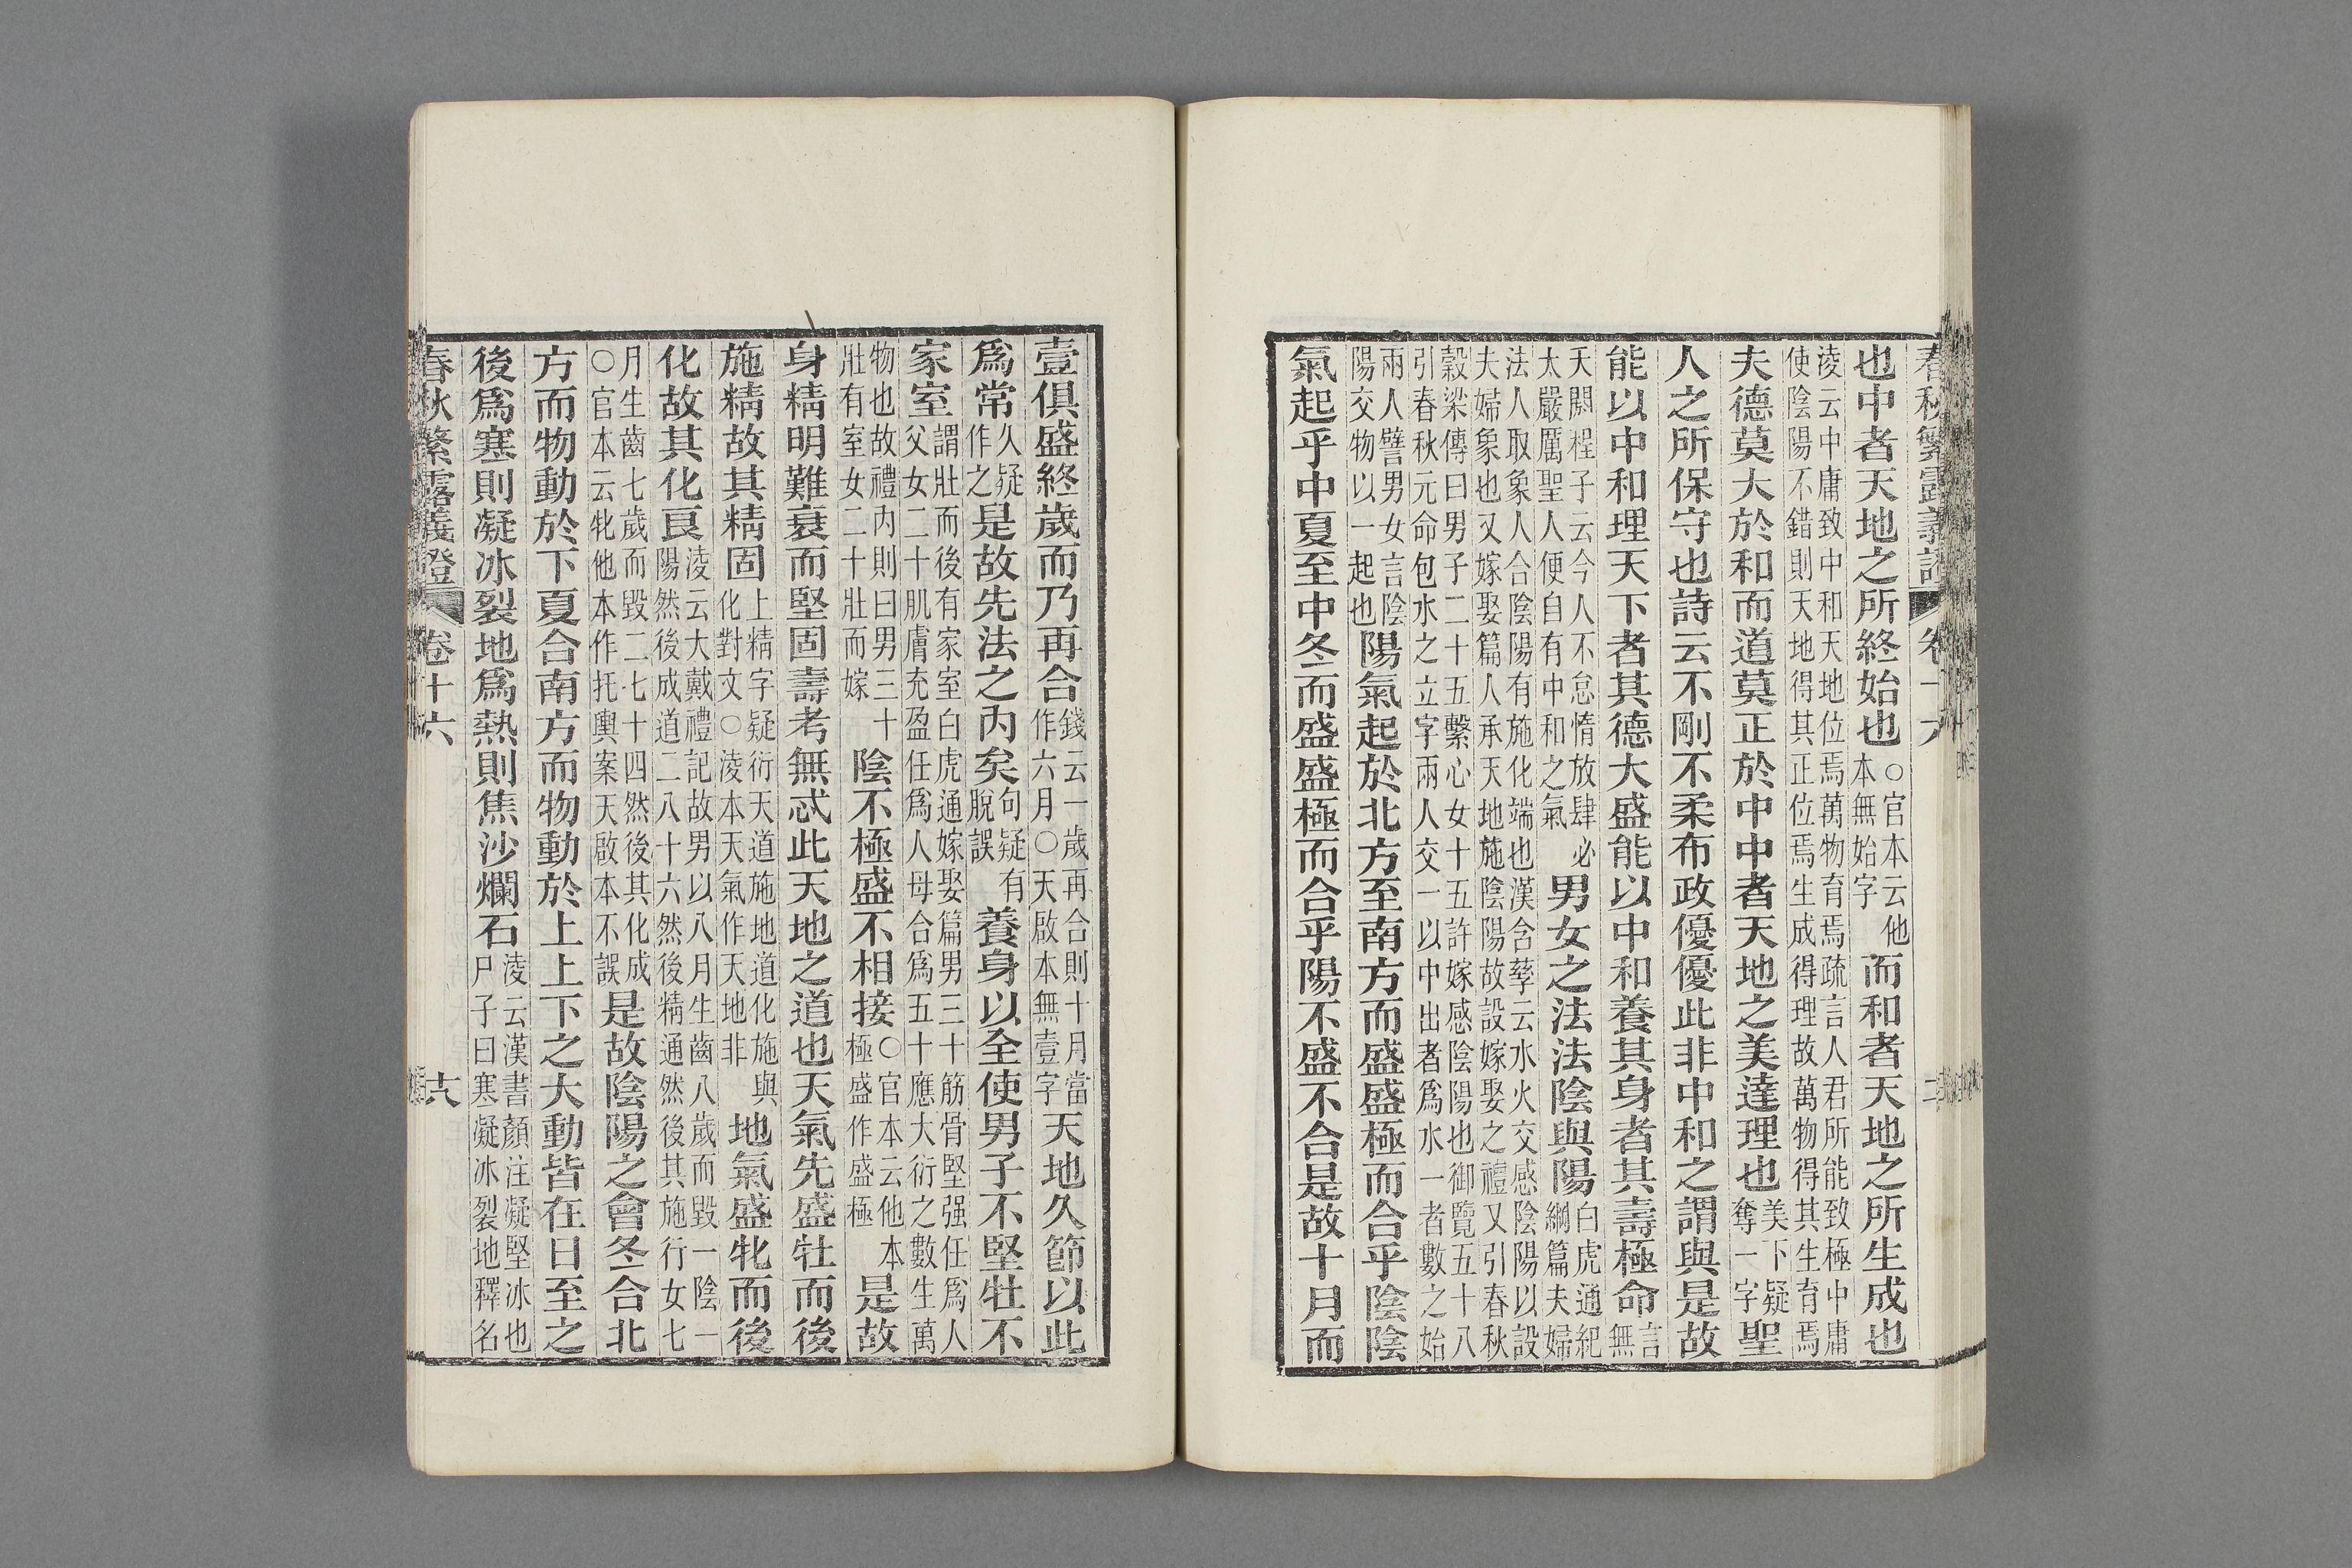 春秋繁露義證 卷十六
也中者天地之所終始也○官本云他本無始字而和者天地之所生成也
淩云中庸致中和天地位焉萬物育焉疏言人君所能致極中庸使陰陽不錯則天地得其正位焉生成得理故萬物得其生育焉
夫德莫大於和而道莫正於中中者天地之美達理也美下疑奪一字聖
人之所保守也詩云不剛不柔布政優優此非中和之謂與是故
能以中和理天下者其德大盛能以中和養其身者其壽極命言無
天閼程子云今人不怠惰放肆必太嚴厲聖人便自有中和之氣男女之法法陰與陽白虎通紀綱篇夫婦
法人取象人合陰陽有施化端也漢含孳云水火交感陰陽以設夫婦象也又嫁娶篇人承天地施陰陽故設嫁娶之禮又引春秋
穀梁傳曰男子二十五繫心女十五許嫁感陰陽也御覽五十八引春秋元命包水之立字兩人交一以中出者爲水一者數之始
兩人譬男女言陰陽交物以一起也陽氣起於北方至南方而盛盛極而合乎陰陰
氣起乎中夏至中冬而盛盛極而合乎陽不盛不合是故十月而
壹俱盛終歲而乃再合錢云一歲再合則十月當作六月○天啟本無壹字天地久節以此
爲常久疑作之是故先法之內矣句疑有脫誤養身以全使男子不堅牡不
家室謂壯而後有家室白虎通嫁娶篇男三十筋骨堅强任爲人父女二十肌膚充盈任爲人母合爲五十應大衍之數生萬
物也故禮內則曰男三十壯有室女二十壯而嫁陰不極盛不相接○官本云他本極盛作盛極是故
身精明難衰而堅固壽考無忒此天地之道也天氣先盛牡而後
施精故其精固上精字疑衍天道施地道化施與化對文○淩本天氣作天地非地氣盛牝而後
化故其化良淩云大戴禮記故男以八月生齒八歲而毀一陰一陽然後成道二八十六然後精通然後其施行女七
月生齒七歲而毀二七十四然後其化成○官本云牝他本作托輿案天啟本不誤是故陰陽之會冬合北
方而物動於下夏合南方而物動於上上下之大動皆在日至之
後爲寒則凝冰裂地爲熱則焦沙爛石淩云漢書顏注凝堅冰也尸子曰寒凝冰裂地釋名
春秋繁露義證 卷十六 十八